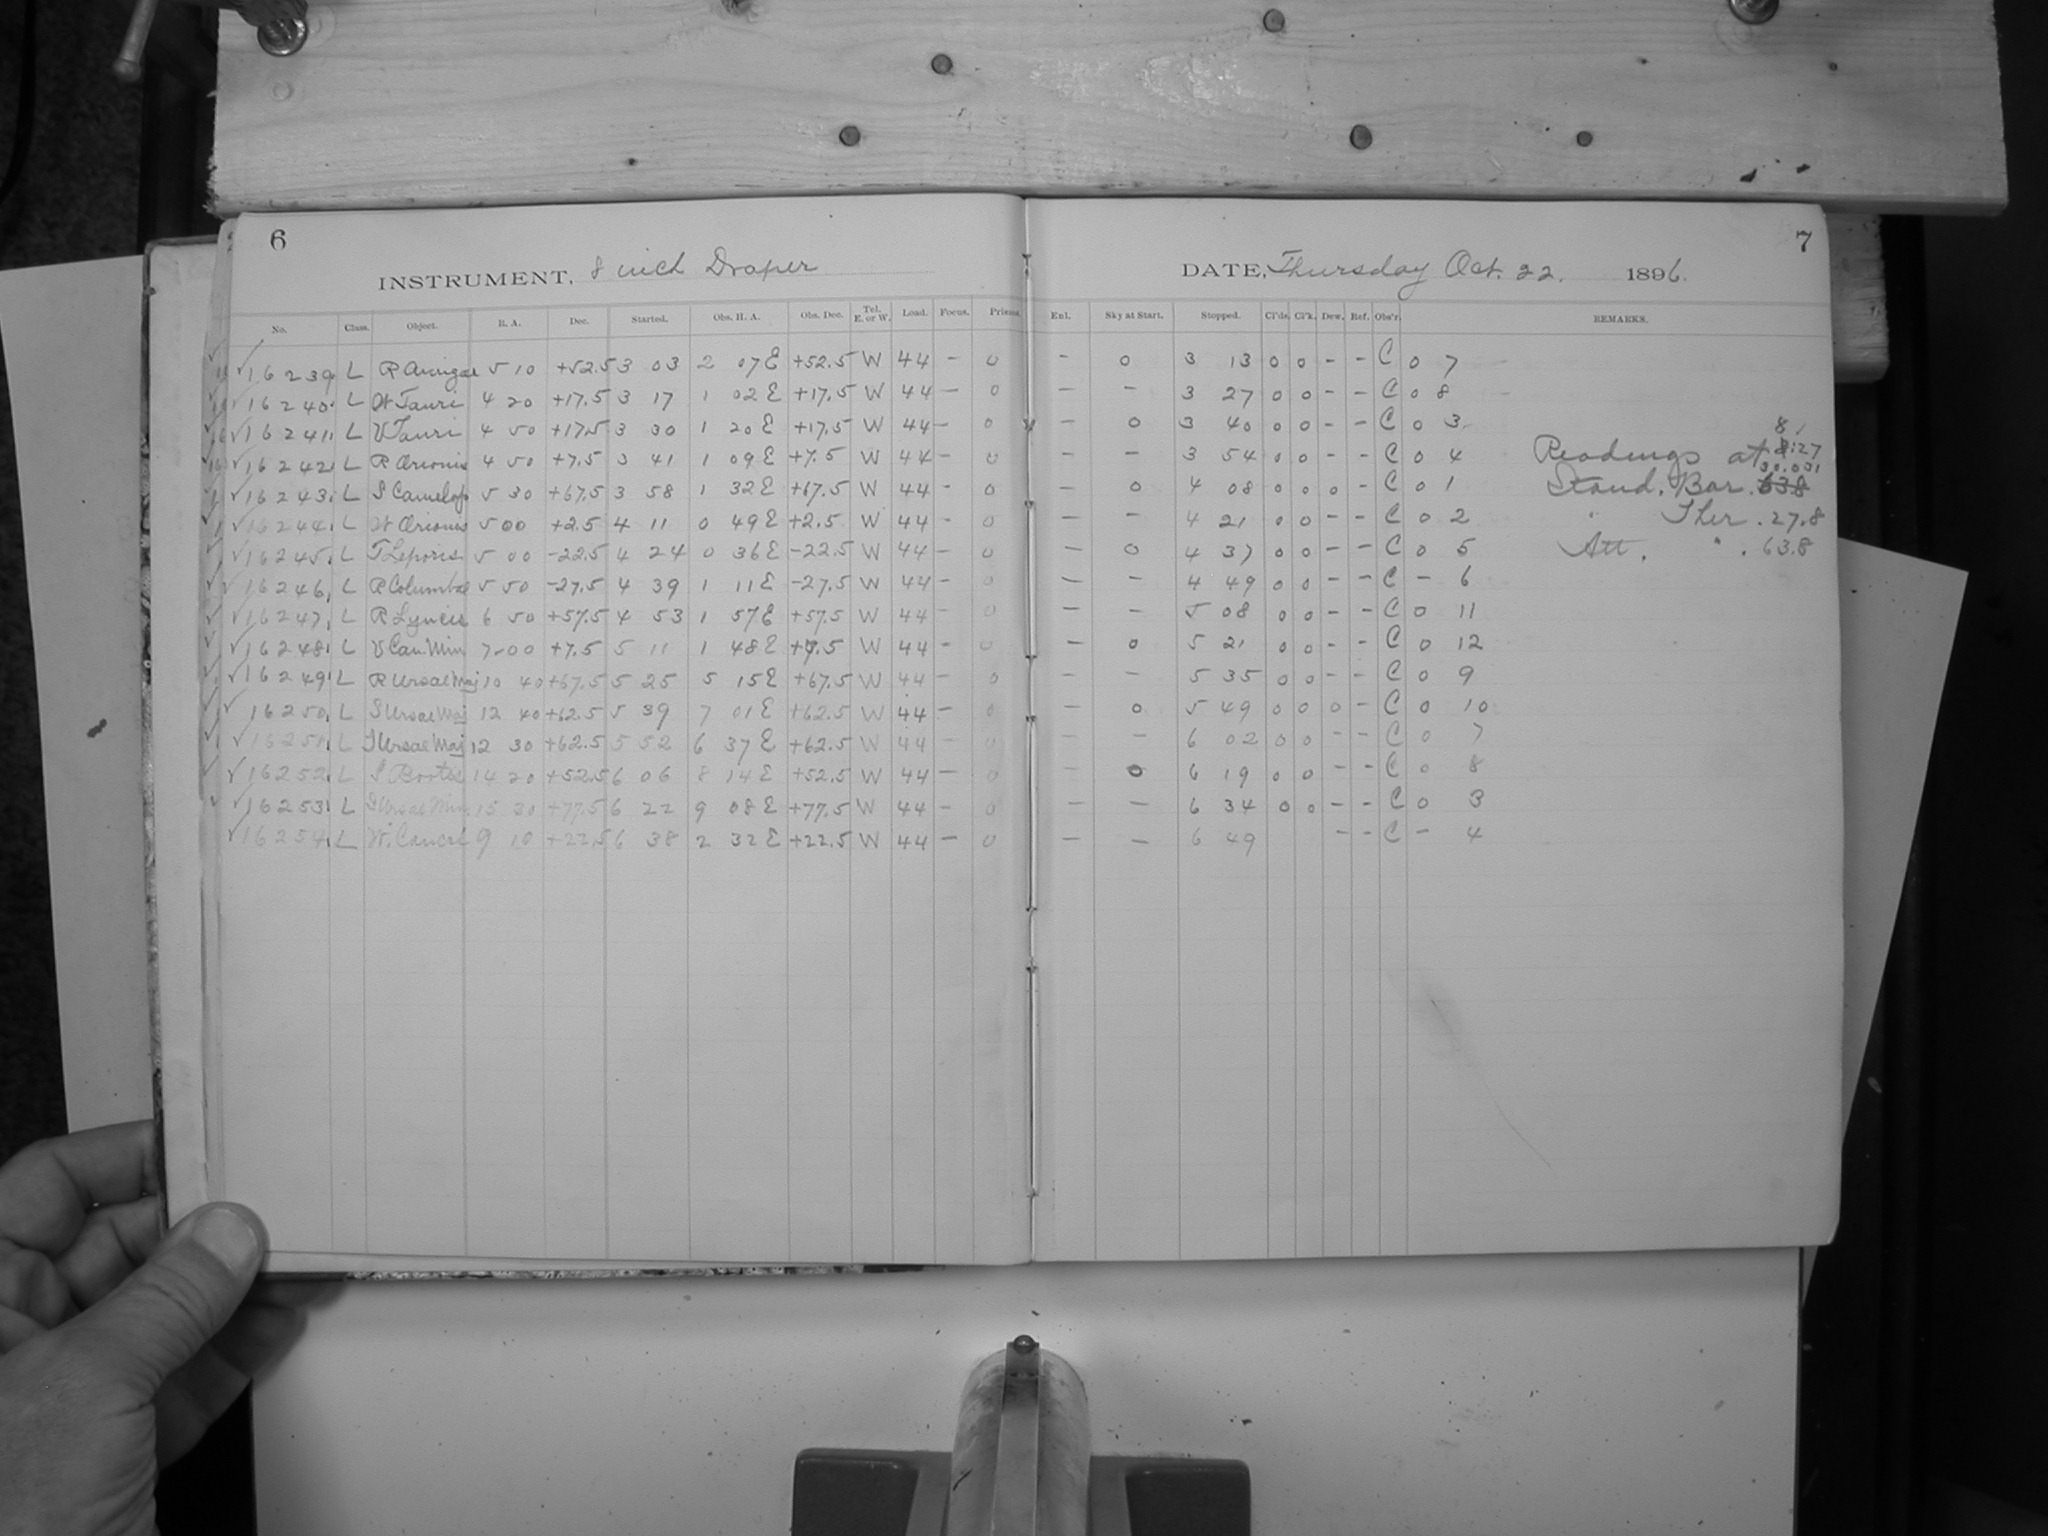 6
INSTRUMENT, 8 inch Draper
No. Class. Object. R. A. Dec. Started. Obs. H. A. Obs. Dec. Tel. E. or W. Load. Focus. Prisms.
✓ 16239 L R Aurigae 5 10 +52.5 3 03 2 07 E +52.5 W 44 - 0
✓ 16240 L W Tauri 4 20 +17.5 3 17 1 02 E +17.5 W 44 - 0
✓ 16241 L V Tauri 4 50 +17.5 3 30 1 20 E +17.5 W 44 - 0
✓ 16242 L R Orionis 4 50 +7.5 3 41 1 09 E +7.5 W 44 - 0
✓ 16243 L S Camelop 5 30 +67.5 3 58 1 32 E +67.5 W 44 - 0
✓ 16244 L W Orionis 5 00 +2.5 4 11 0 49 E +2.5 W 44 - 0
✓ 16245 L T Leporis 5 00 -22.5 4 24 0 36 E -22.5 W 44 - 0
✓ 16246 L R Columbae 5 50 -27.5 4 39 1 11 E -27.5 W 44 - 0
✓ 16247 L R Lyncis 6 50 +57.5 4 53 1 57 E +57.5 W 44 - 0
✓ 16248 L V Can. Min 7 00 +7.5 5 11 1 48 E +7.5 W 44 - 0
✓ 16249 L R Ursae Maj 10 40 +67.5 5 25 5 15 E +67.5 W 44 - 0
✓ 16250 L S Ursae Maj 12 40 +62.5 5 39 7 01 E +62.5 W 44 - 0
✓ 16251 L T Ursae Maj 12 30 +62.5 5 52 6 37 E +62.5 W 44 - 0
✓ 16252 L S Bootis 14 20 +52.5 6 06 8 14 E +52.5 W 44 - 0
✓ 16253 L S Ursae Min 15 30 +77.5 6 22 9 08 E +77.5 W 44 - 0
✓ 16254 L W. Cancri 9 10 +22.5 6 38 2 32 E +22.5 W 44 - 0
7
DATE, Thursday Oct. 22. 1896.
Enl. Sky at Start. Stopped. Cl'ds. Cl'k. Dew. Ref. Obs'r. REMARKS.
- 0 3 13 0 0 - - C 0 7
- - 3 27 0 0 - - C 0 8
- 0 3 40 0 0 - - C 0 3
- - 3 54 0 0 - - C 0 4
- 0 4 08 0 0 0 - C 0 1
- - 4 21 0 0 - - C 0 2
- 0 4 37 0 0 - - C 0 5
- - 4 49 0 0 - - C - 6
- - 5 08 0 0 - - C 0 11
- 0 5 21 0 0 - - C 0 12
- - 5 35 0 0 - - C 0 9
- 0 5 49 0 0 0 - C 0 10
- - 6 02 0 0 - - C 0 7
- 0 6 19 0 0 - - C 0 8
- - 6 34 0 0 - - C 0 3
- - 6 49 - - C - 4
Readings at 8:27
30.031
Stand. Bar. 63.8
" Ther. 27.8
Att. " . 63.8